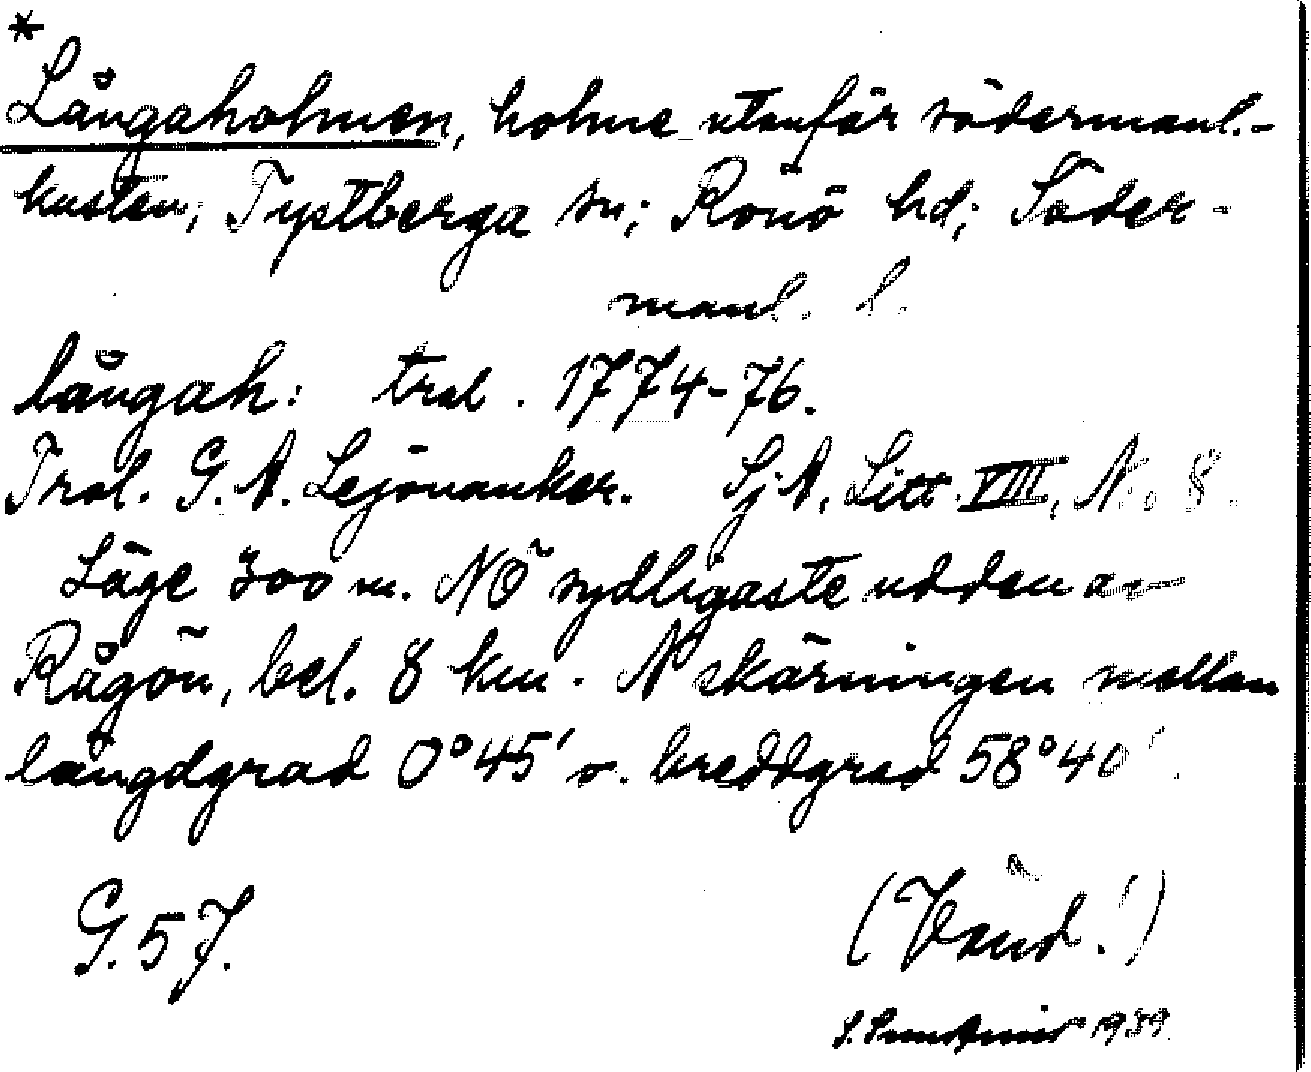 *
Långaholmen, holme utanför södermanl.-
kusten; Tystberga sn; Rönö hd; Söder-
manl. l.
långah: trol. 1774-76.
Trol. G. A. Lejonanker. SjA. Litt. VIII, N:o 8.
Läge 300 m. NÖ sydligaste udden av
Rågön, bel. 8 km. N skärningen mellan
längdgrad 0°45' o. breddgrad 58°40'.
G. 57.
(Vänd!)
1939